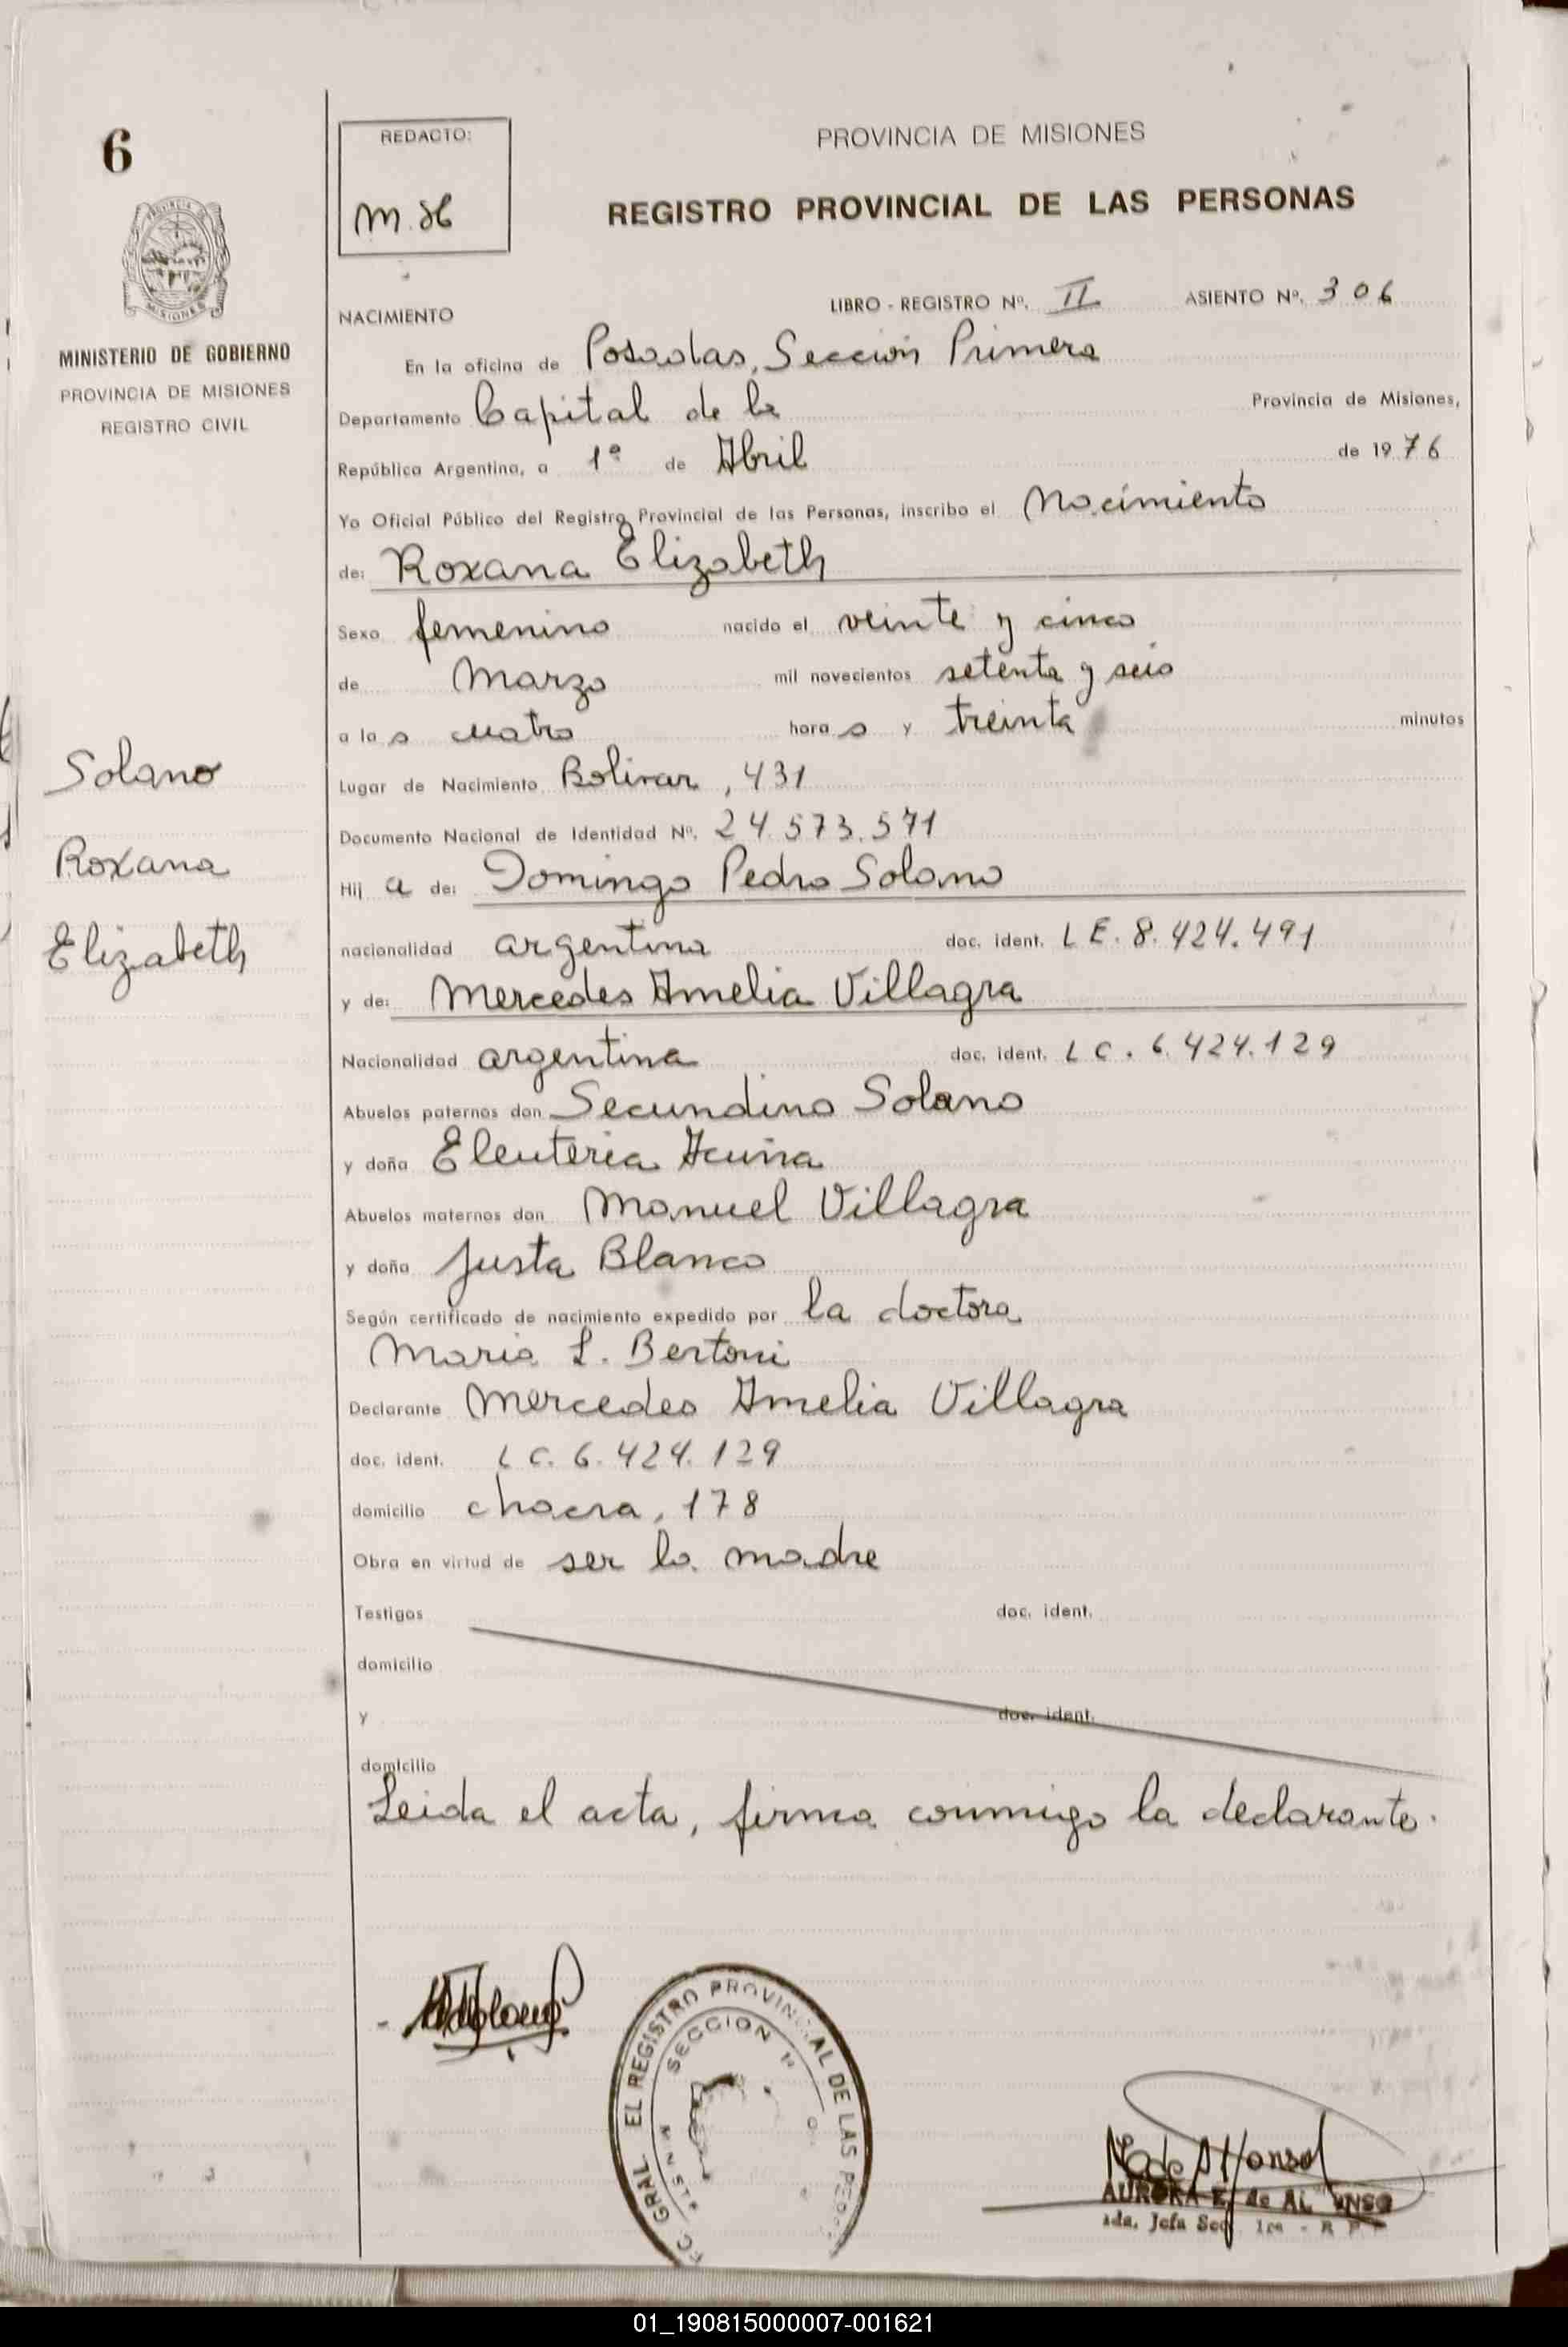 6
REDACTO:
M.H
PROVINCIA DE MISIONES
REGISTRO PROVINCIAL DE LAS PERSONAS
PROVINCIA DE
MISIONES
MINISTERIO DE GOBIERNO
PROVINCIA DE MISIONES
REGISTRO CIVIL
LIBRO - REGISTRO Nº. II ASIENTO Nº. 306
NACIMIENTO
En la oficina de Posadas, Sección Primera
Departamento Capital de la Provincia de Misiones,
República Argentina, a 1º de Abril de 1976
Yo Oficial Público del Registro Provincial de las Personas, inscribo el Nacimiento
de: Roxana Elizabeth
Sexo femenino nacido el veinte y cinco
de Marzo mil novecientos setenta y seis
a las cuatro horas y treinta minutos
Lugar de Nacimiento Bolivar, 431
Documento Nacional de Identidad Nº. 24.573.571
Hij a de: Domingo Pedro Solano
nacionalidad argentina doc. ident. L E. 8.424.491
y de: Mercedes Amelia Villagra
Nacionalidad argentina doc. ident. L C. 6.424.129
Abuelos paternos don Secundino Solano
y doña Eleuteria Acuña
Abuelos maternos don Manuel Villagra
y doña Justa Blanco
Según certificado de nacimiento expedido por la doctora
Maria L. Bertoni
Declarante Mercedes Amelia Villagra
doc. ident. L C. 6.424.129
domicilio chacra, 178
Obra en virtud de ser la madre
Testigos doc. ident.
domicilio
y doc. ident.
domicilio
Leida el acta, firma conmigo la declarante.
Solano
Roxana
Elizabeth
GRAL EL REGISTRO PROVINCIAL DE LAS
SECCION 1ª
AURORA E. de ALFONSO
Jefa Sec. 1ra - R P
01_190815000007-001621